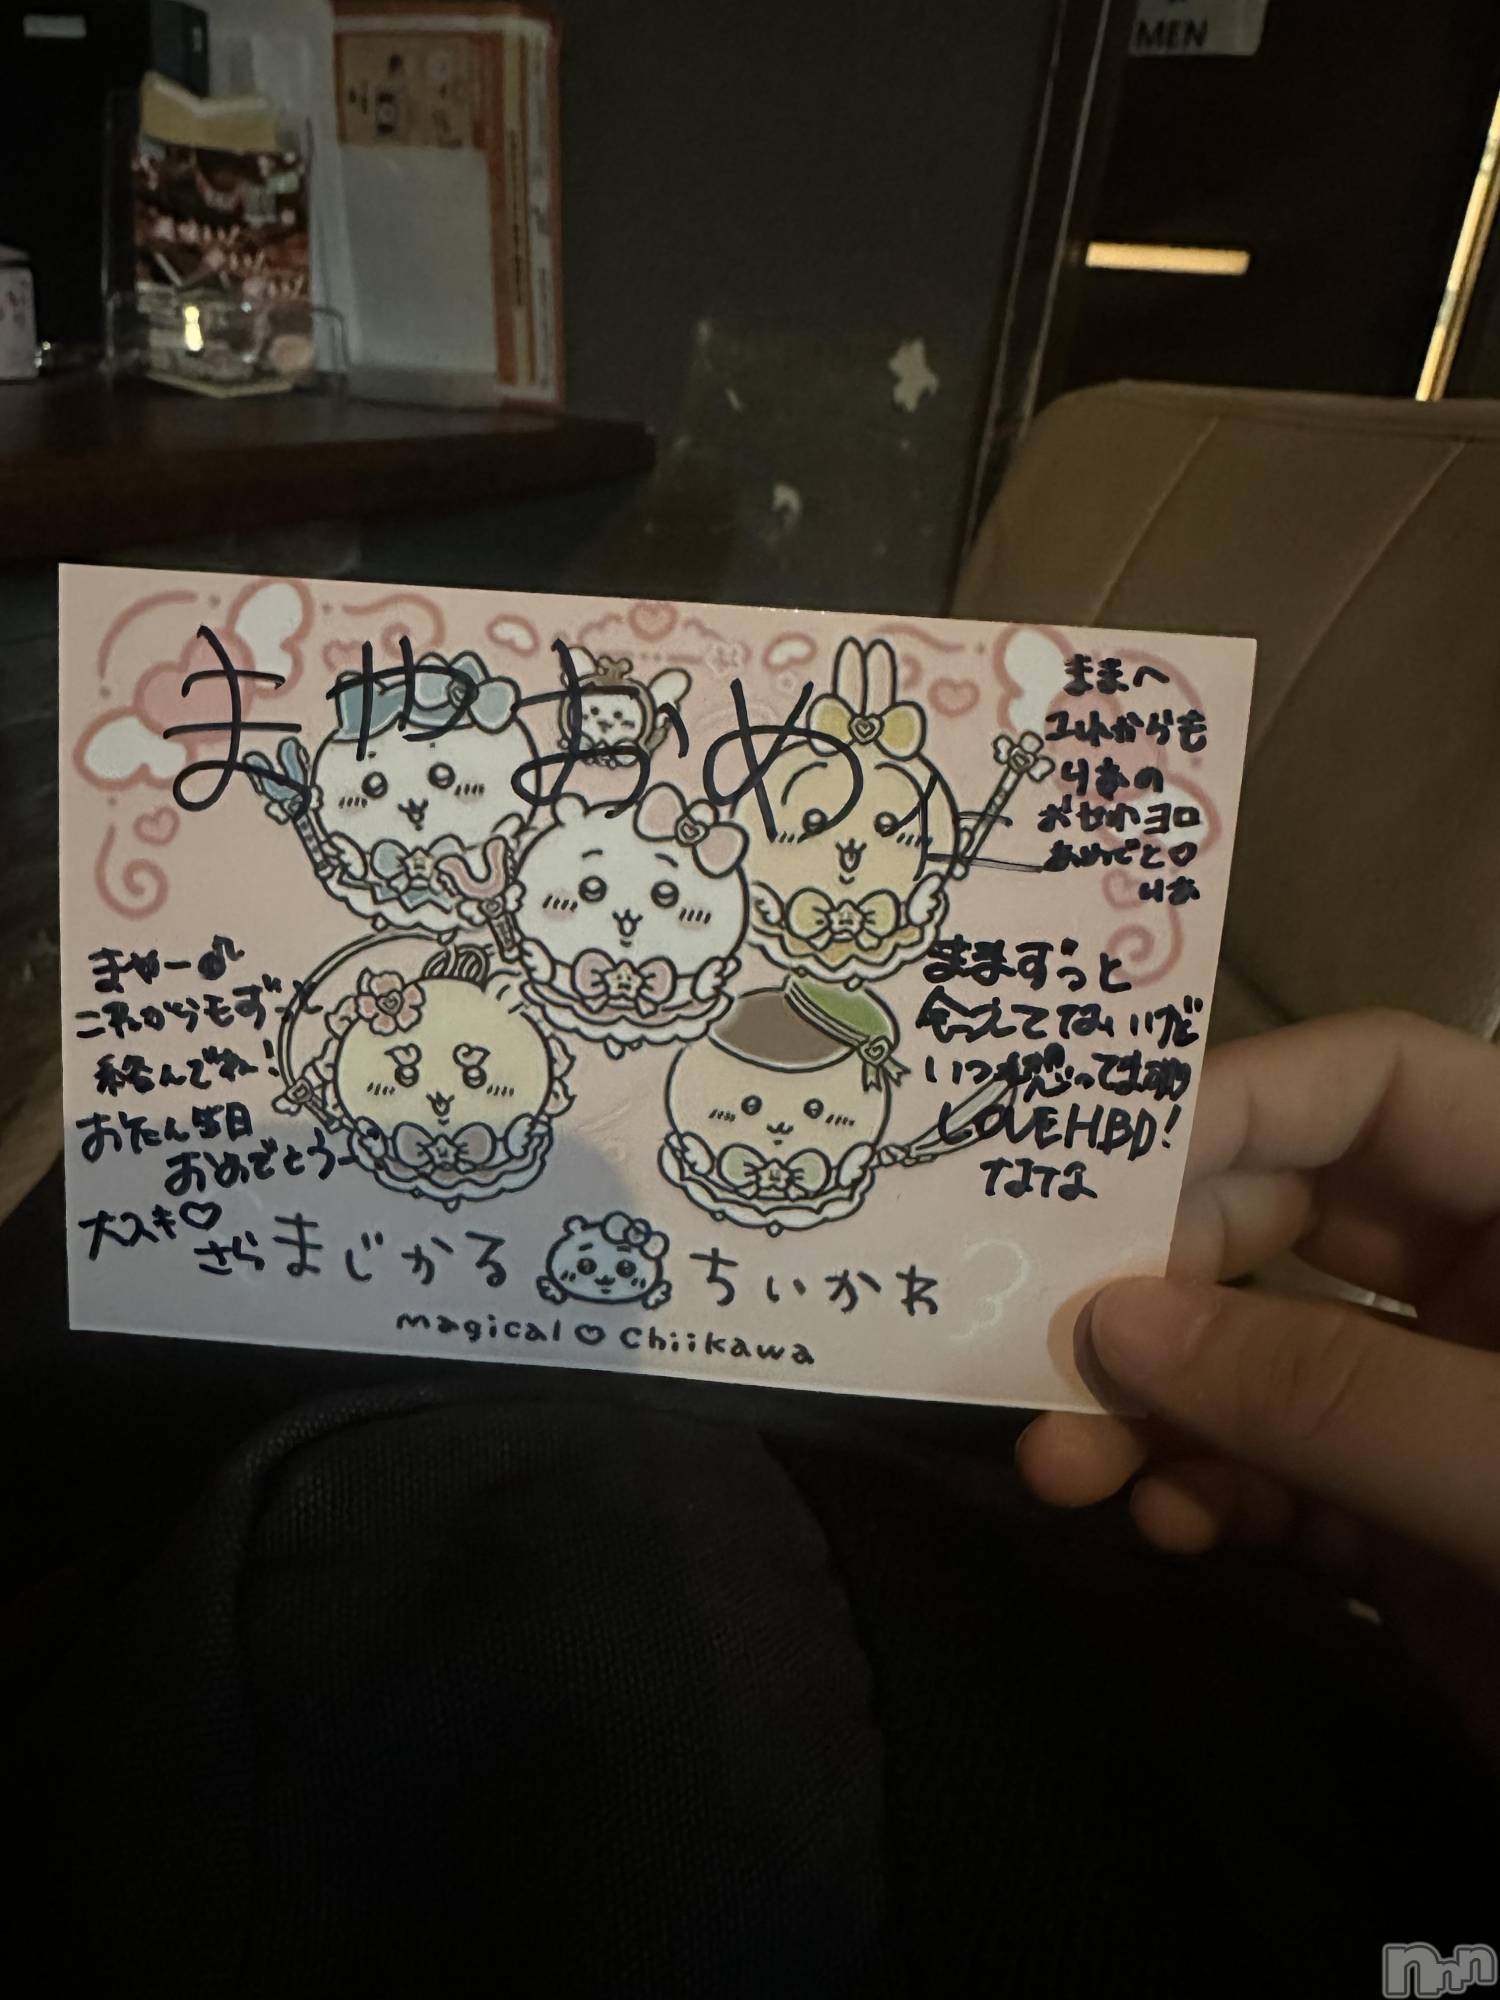 MEN
まやおめ
ままへ
これからも
りあの
おせわヨロ
おめでと♡
りあ
まやー♪
これからもずっと
絡んでね!
おたん生日
おめでとうー
大スキ♡
さら
ままずっと
会えてないけど
いつも想ってます
LOVE HBD!
なな
まじかる ちいかわ
magical♡Chiikawa
nnn